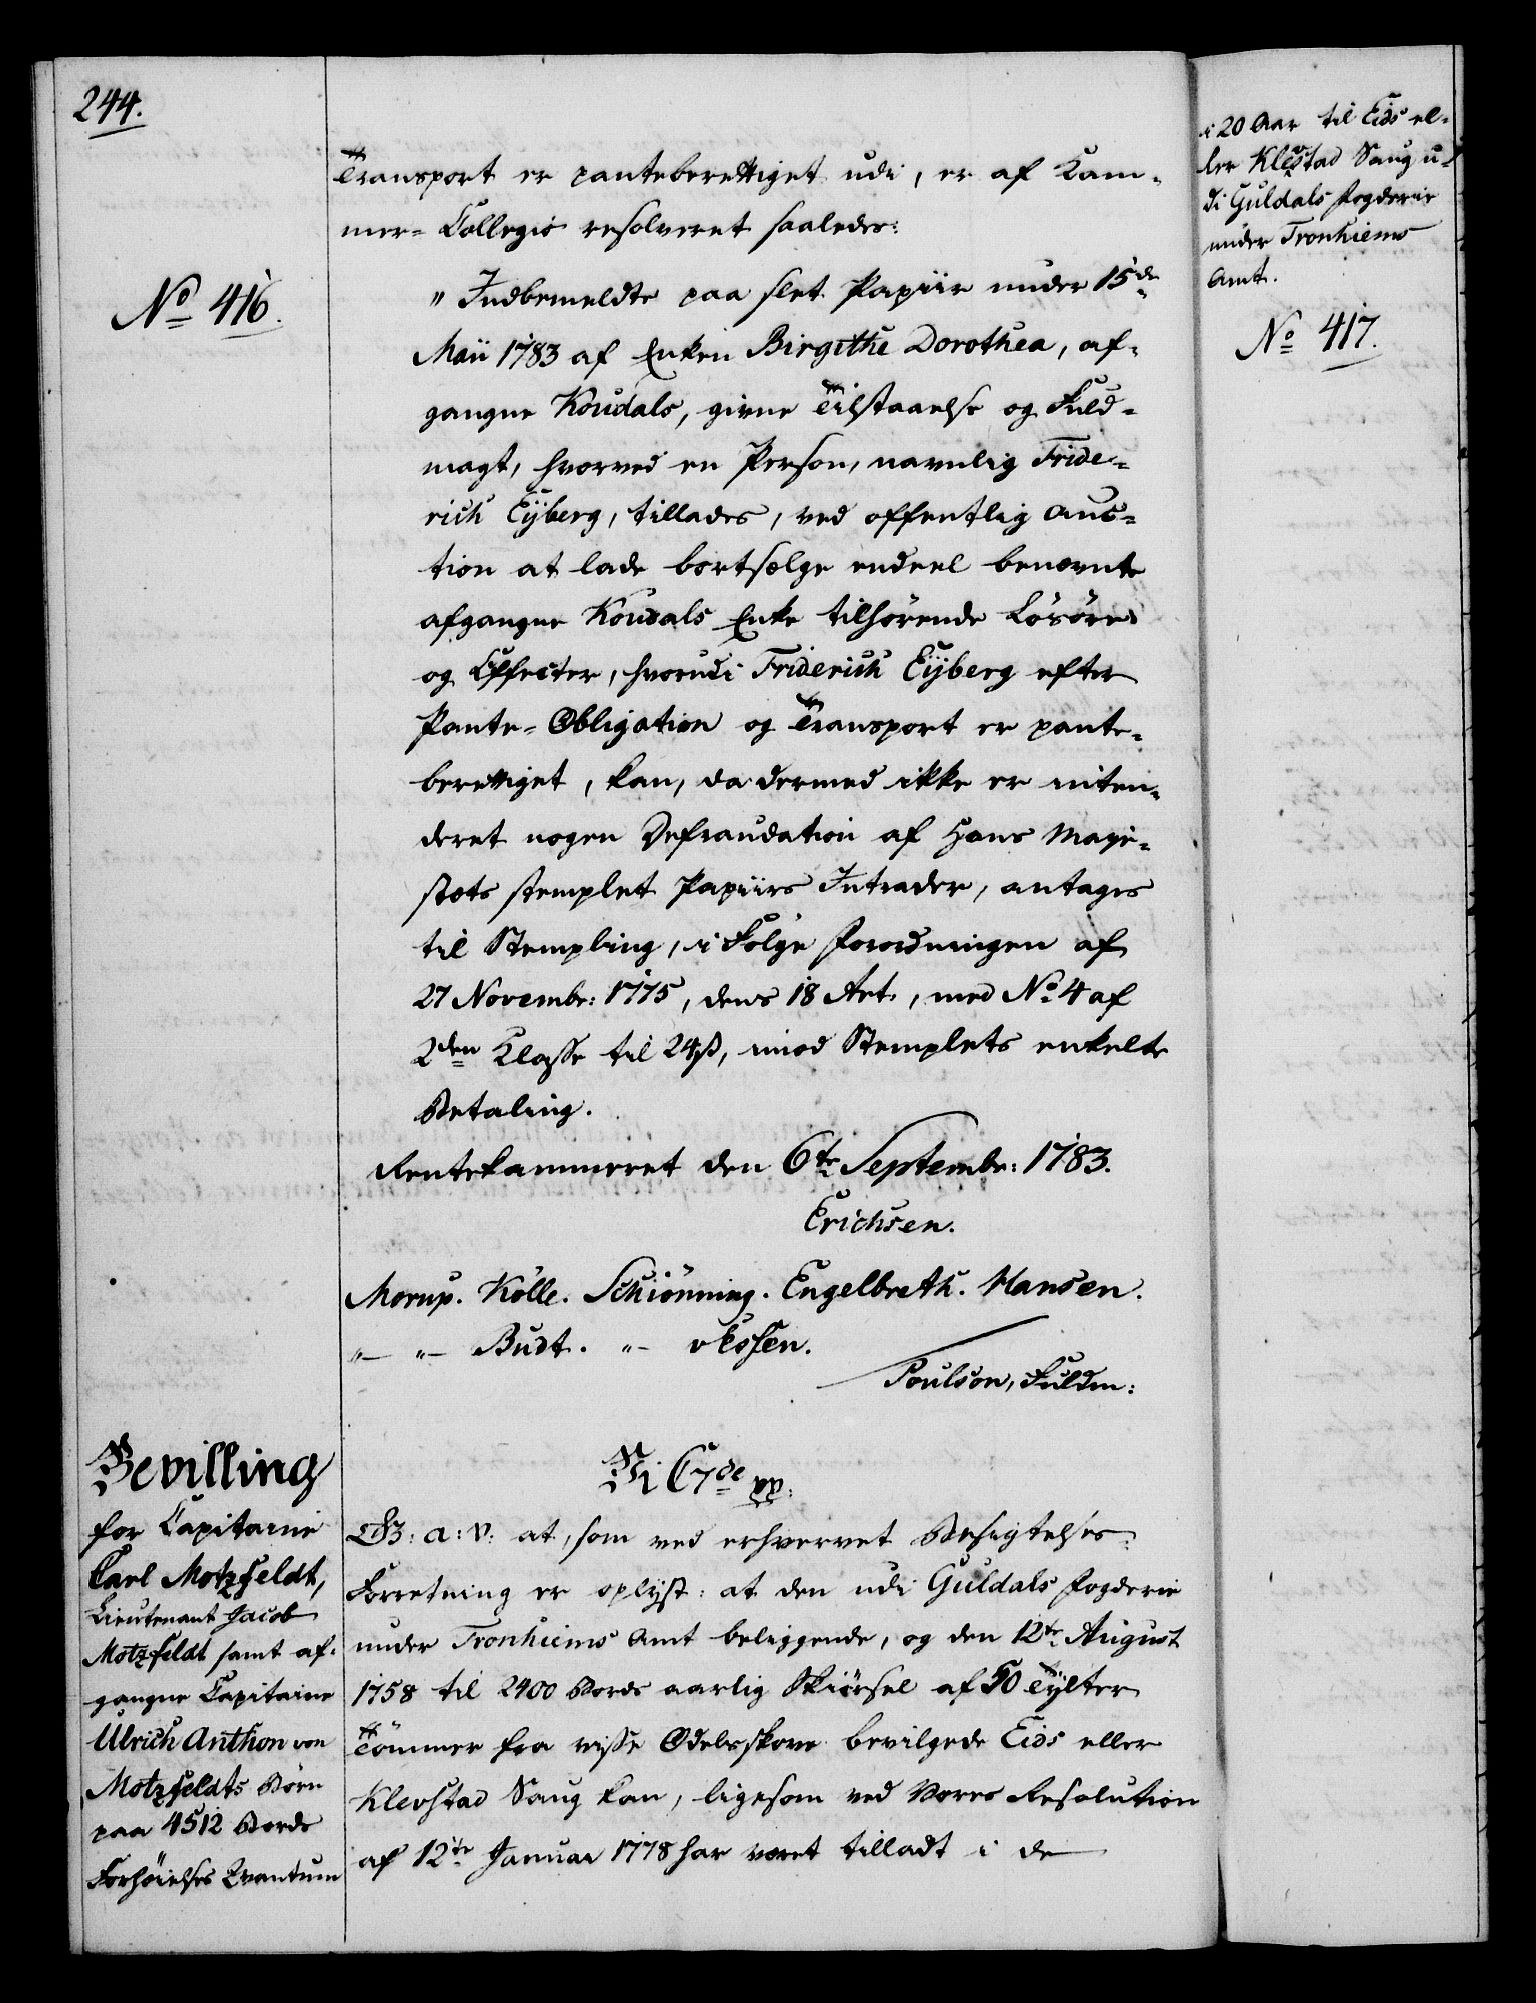 244.
Transport er panteberettiget udi, er af Kam-
mer-Collegio resolveret saaledes:
No 416.
" Indbemeldte paa slet Papiir under 15de
Maii 1783 af Enken Birgithe Dorothea, af-
gangne Koudals, givne Tilstaaelse og Fuld-
magt, hvorved en Person, navnlig Fride-
rich Eÿberg, tillades, ved offentlig Auc-
tion at lade bortsælge endeel benævnte
afgangne Koudals Enke tilhørende Løsøre
og Effecter, hvorudi Friderich Eÿberg efter
Pante-Obligation og Transport er pante-
berettiget, kan, da dermed ikke er inten-
deret nogen Defraudation af Hans Maje-
stæts stemplet Papiirs Intrader, antages
til Stempling, i Følge Forordningen af
27 Novembr: 1775, dens 18 Art., med No 4 af
2den Classe til 24 ß, imod Stemplets enkelte
Betaling.
Rentekammeret den 6te Septembr: 1783.
Erichsen.
Morup. Kölle. Schiönning. Engelbreth. Hansen.
"- "- Budt. "- vEssen.
Poulson, Fuldm:
Bevilling
for Capitaine
Carl Motzfeldt,
Lieutenant Jacob
Motzfeldt samt af-
gangne Capitaine
Ulrich Anthon von
Motzfeldts Børn
paa 4512 Bords
Forhøielses Qvantum
Vi C7de pp:
G: a: V: at, som ved erhvervet Besigtelses-
Forretning er oplyst: at den udi Guldals Fogderie
under Tronhiems Amt beliggende, og den 12te August
1758 til 2400 Bords aarlig Skiørsel af 50 Tÿlter
Tömmer fra visse Odelsskove bevilgede Eids eller
Klevstad Saug kan, ligesom ved Vores Resolution
af 12te Januar 1778 har været tilladt i de
i 20 Aar til Eids el-
ler Klevstad Saug u-
di Guldals Fogderie
under Tronhiems
Amt.
No 417.